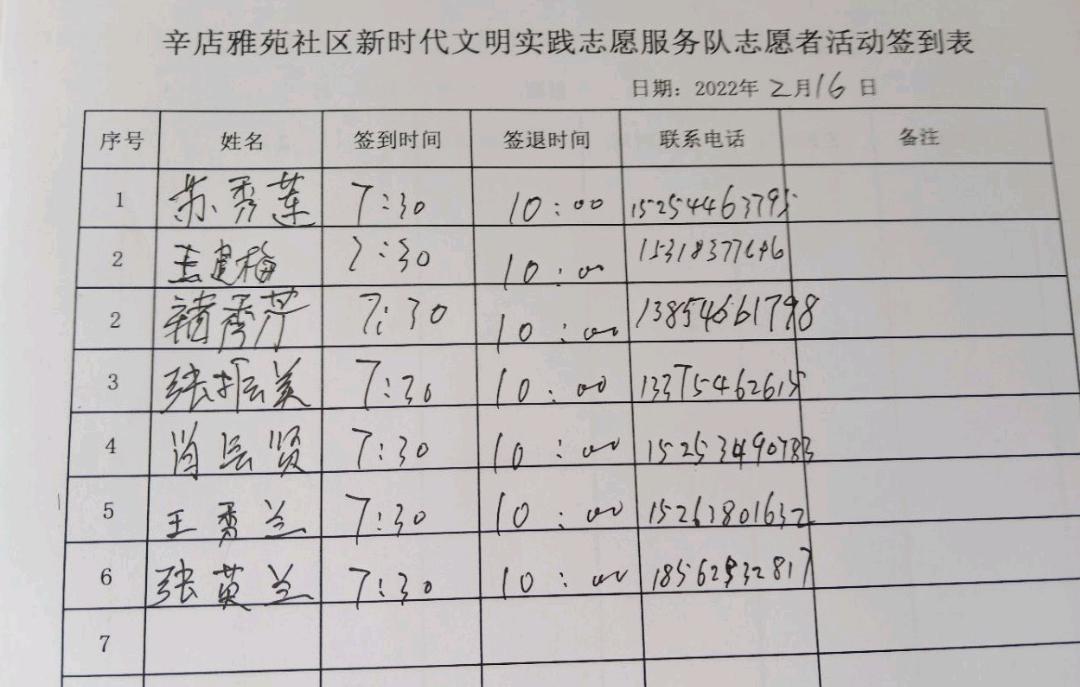 辛店雅苑社区新时代文明实践志愿服务队志愿者活动签到表
日期：2022年 2月16日
序号 姓名 签到时间 签退时间 联系电话 备注
1 苏秀莲 7:30 10:00 15254463795
2 王建梅 7:30 10:00 15318377646
2 褚秀芹 7:30 10:00 13854661798
3 张振美 7:30 10:00 13375462615
4 肖云贤 7:30 10:00 15253490783
5 王秀兰 7:30 10:00 15263801632
6 张英兰 7:30 10:00 18562932817
7